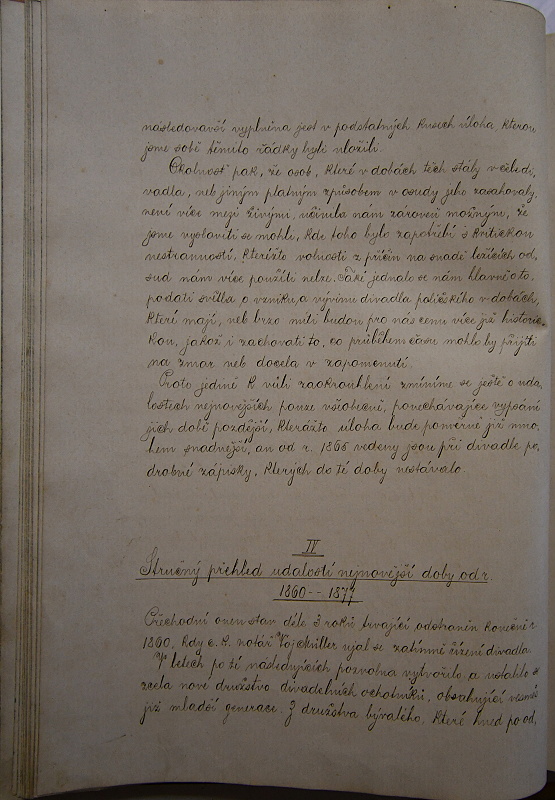 následovavší vyplněna jest v podstatných kusech úloha, kterou
jsme sobě těmito řádky byli uložili.
Okolnost pak, že osob, které v dobách těch stály v čele di,
vadla, neb jiným platným způsobem v osudy jeho zasahovaly,
není více mezi živými, učinila nám zároveň možným, že
jsme vysloviti se mohli, kde toho bylo zapotřebí s kritickou
nestranností, kterěžto volnosti z příčin na snadě ležících od,
sud nám více použíti nelze. Také jednalo se nám hlavně o to,
podati světla o vzniku a vývinu divadla poličského v dobách,
které mají, neb brzo míti budou pro nás cenu více již historic
kou, jakož i zachovati to, co průběhem času mohlo by přijíti
na zmar neb docela v zapomenutí.
Proto jedině k vůli zaokrouhlení zmíníme se ještě o udá,
lostech nejnovějších pouze všeobecně, ponechávajíce vypsání
jich době pozdější, kterážto úloha bude poměrně již mno,
hem snadnější, an od r. 1865 vedeny jsou při divadle po,
drobné zápisky, kterých do té doby nestávalo.
IV
Stručný přehled událostí nejnovější doby od r.
1860 -- 1877
Přechodní onen stav déle 3 roků trvající, odstraněn konečně r.
1860, kdy c. k. notář Vojc. Müller ujal se zatímní řízení divadla.
V letech po té následujících pozvolna vytvořilo a ustálilo se
zcela nové družstvo divadelních ochotníků, obsahující vesměs
již mladší generace. Z družstva bývalého, které hned po od,